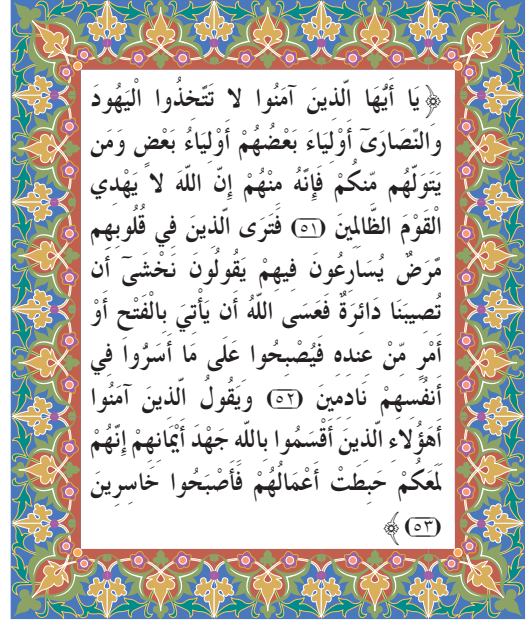 ﴿يَا أَيُّهَا الَّذِينَ آمَنُوا لا تَتَّخِذُوا الْيَهُودَ
والنَّصَارَىٓ أَوْلِيَاءَ بَعْضُهُمْ أَوْلِيَاءُ بَعْضٍ وَمَن
يَتَوَلَّهُم مِّنكُمْ فَإِنَّهُ مِنْهُمْ إِنَّ اللَّهَ لا يَهْدِي
الْقَوْمَ الظَّالِمِينَ (٥١) فَتَرَى الَّذِينَ فِي قُلُوبِهِم
مَّرَضٌ يُسَارِعُونَ فِيهِمْ يَقُولُونَ نَخْشَىٓ أَن
تُصِيبَنَا دَائِرَةٌ فَعَسَى اللَّهُ أَن يَأْتِيَ بِالْفَتْحِ أَوْ
أَمْرٍ مِّنْ عِندِهِ فَيُصْبِحُوا عَلَى مَا أَسَرُّوا فِي
أَنفُسِهِمْ نَادِمِينَ (٥٢) ويَقُولُ الَّذِينَ آمَنُوا
أَهؤُلاءِ الَّذِينَ أَقْسَمُوا بِاللَّهِ جَهْدَ أَيْمَانِهِمْ إِنَّهُمْ
لَمَعَكُمْ حَبِطَتْ أَعْمَالُهُمْ فَأَصْبَحُوا خَاسِرِينَ
(٥٣)﴾